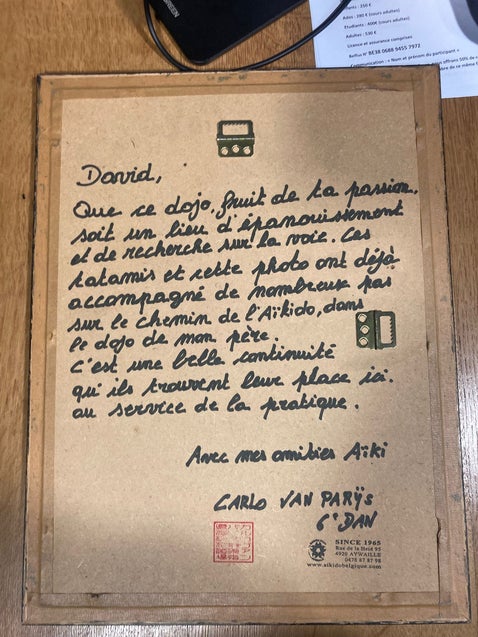 GREEN
Ados : 280 € (cours adultes)
Etudiants : 400€ (cours adultes)
Adultes : 530 €
Licence et assurance comprises
BE38 0688 9455 7972
Communication : « Nom et prénom du participant »
David,
Que ce dojo, fruit de ta passion,
soit un lieu d'épanouissement
et de recherche sur la voie. Ces
tatamis et cette photo ont déjà
accompagné de nombreux pas
sur le chemin de l'Aïkido, dans
le dojo de mon père.
C'est une belle continuité
qu'ils trouvent leur place ici.
au service de la pratique.
Avec mes amitiés Aïki
CARLO VAN PARŸS
6° DAN
SINCE 1965
Rue de la Heid 95
4920 AYWAILLE
0478 87 87 98
www.aikidobelgique.com